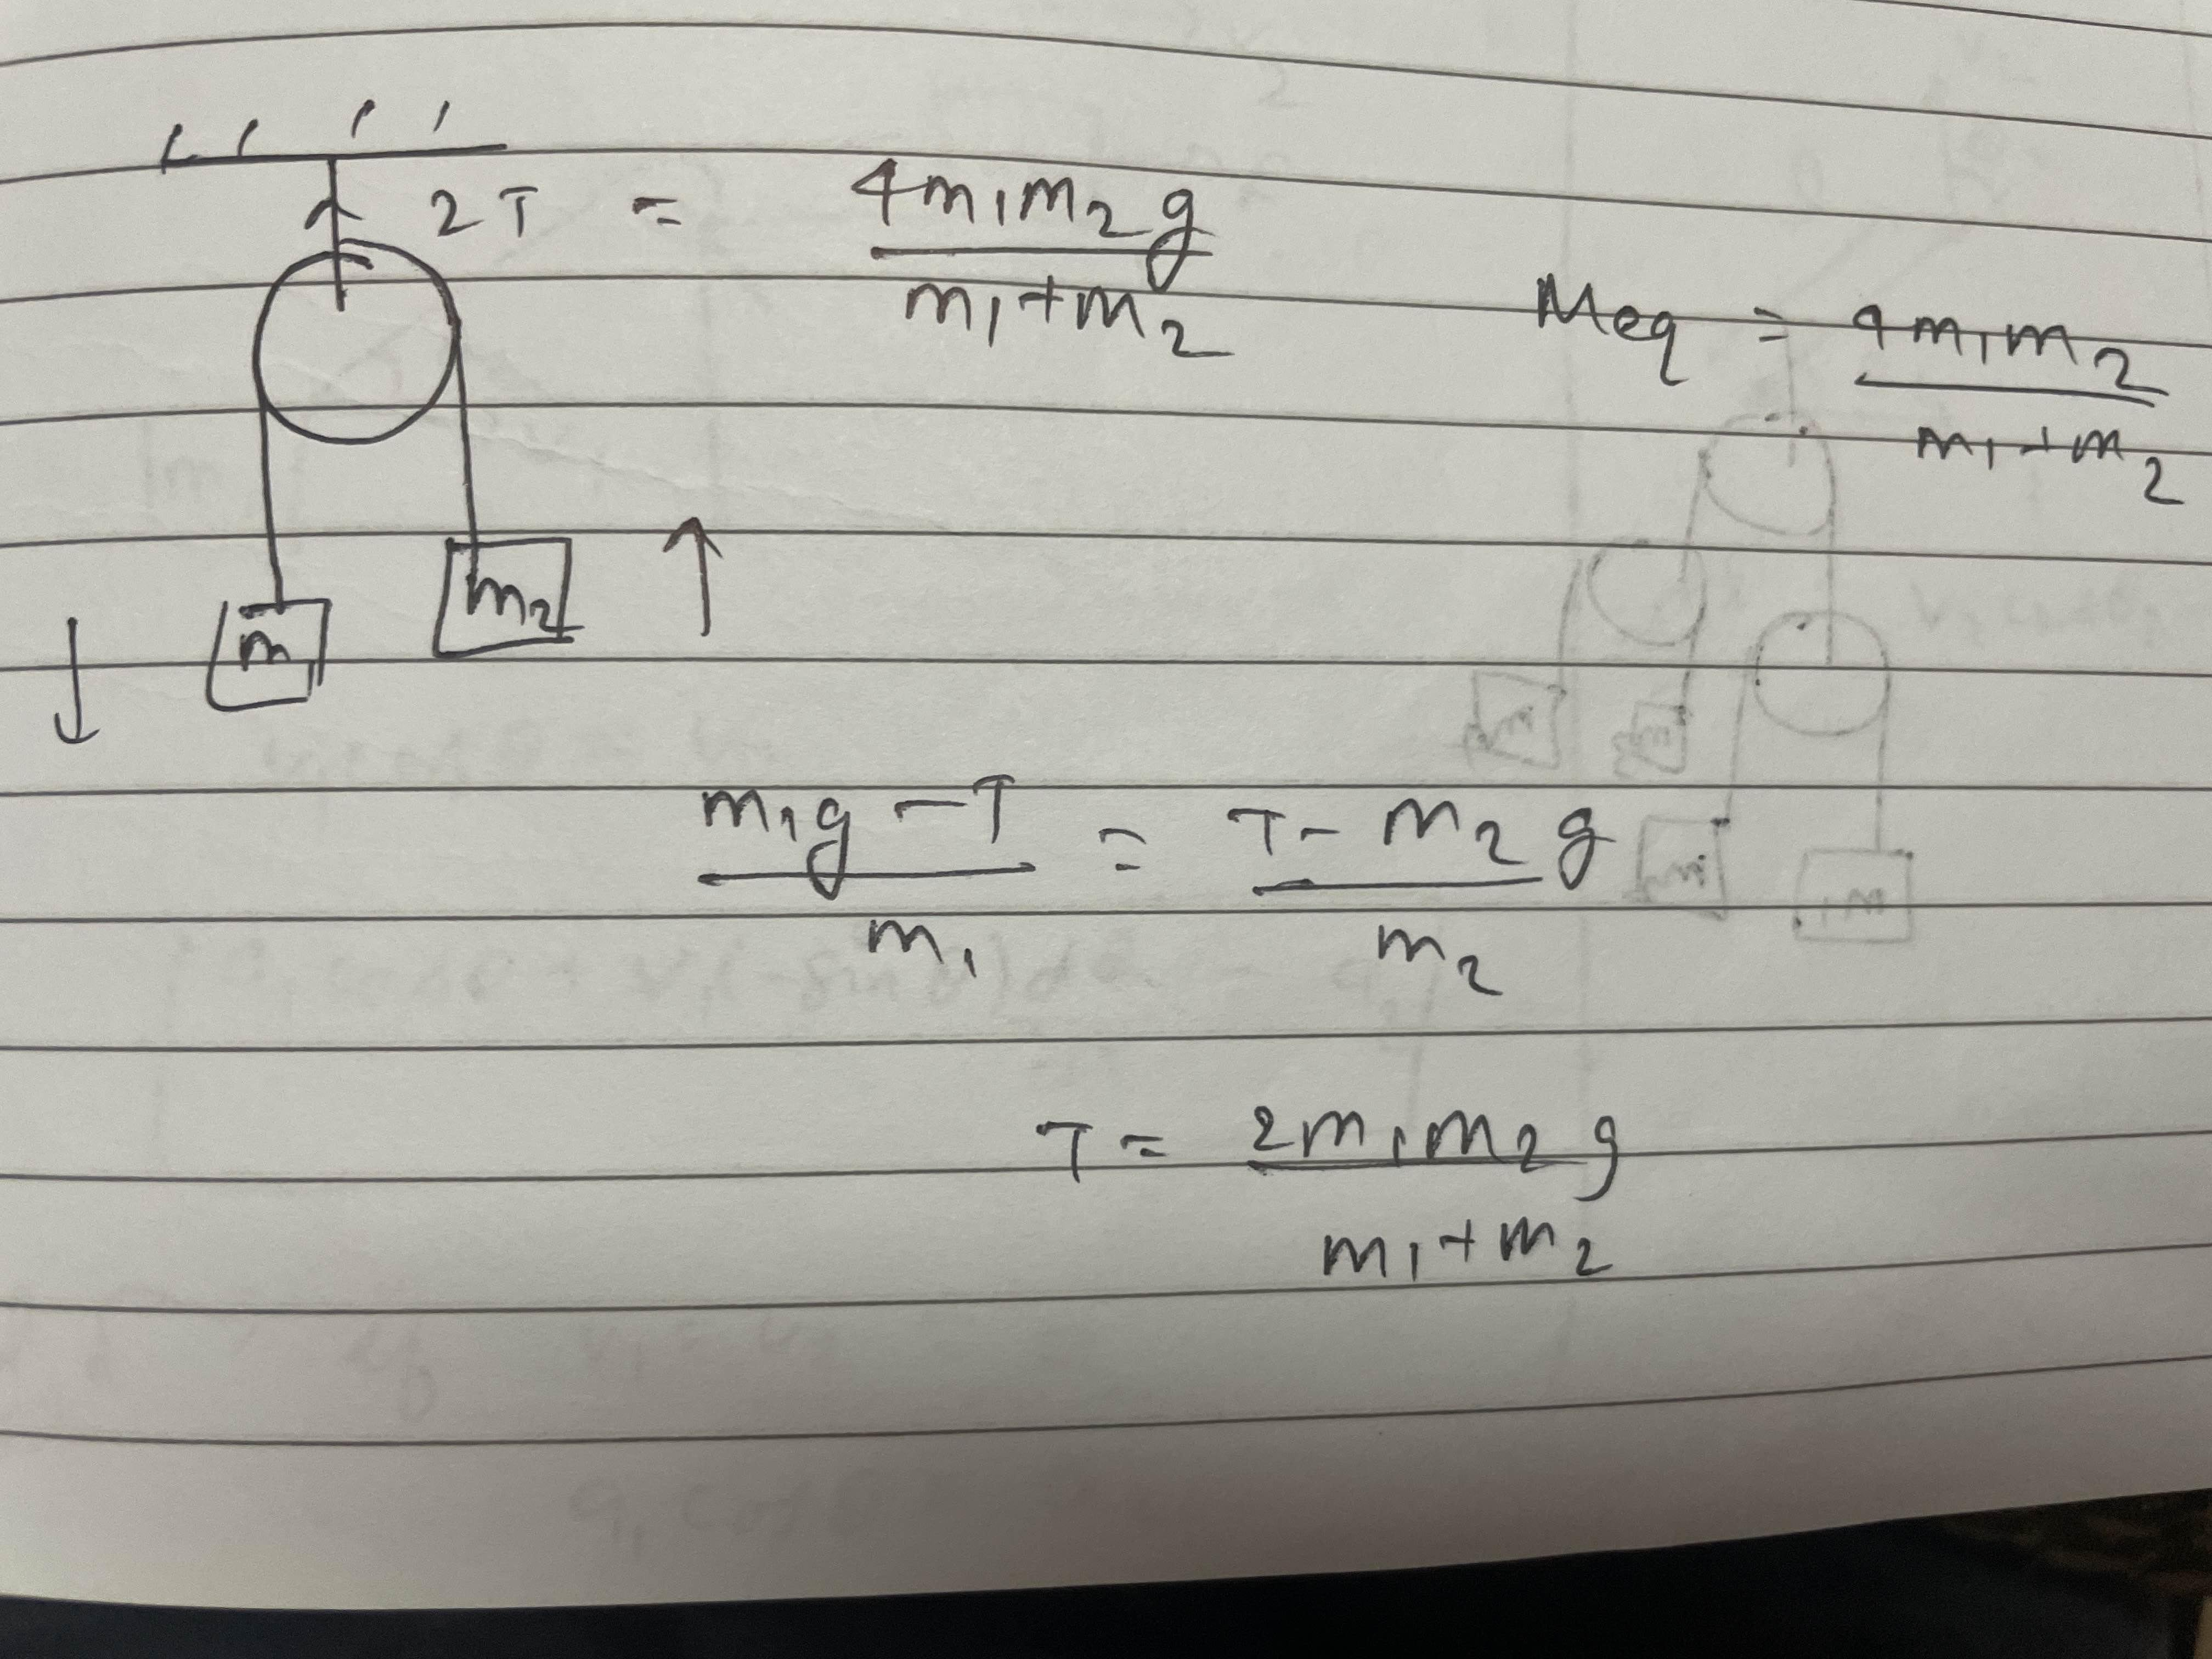 2T = 4m₁m₂g / m₁+m₂
Meq = 4m₁m₂ / m₁+m₂
m₁ m₂
m₁g - T / m₁ = T - m₂g / m₂
T = 2m₁m₂g / m₁+m₂